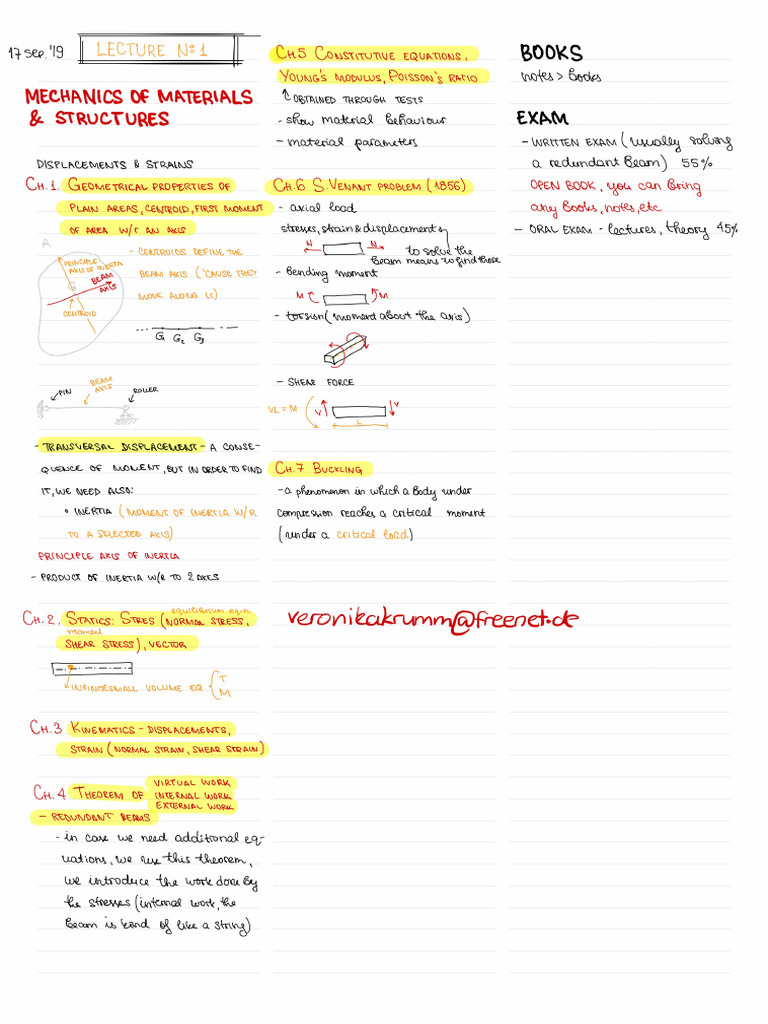 17 sep. '19
LECTURE Nº 1
MECHANICS OF MATERIALS
& STRUCTURES
DISPLACEMENTS & STRAINS
CH.1. GEOMETRICAL PROPERTIES OF
PLAIN AREAS, CENTROID, FIRST MOMENT
OF AREA W/R AN AXIS
A
PRINCIPLE
AXIS OF INERTIA
BEAM
AXIS
G
CENTROID
- CENTROIDS DEFINE THE
BEAM AXIS ('CAUSE THEY
MOVE ALONG IT)
G1 G2 G3
PIN
BEAM
AXIS
ROLLER
- TRANSVERSAL DISPLACEMENT - A CONSE-
QUENCE OF MOMENT, BUT IN ORDER TO FIND
IT, WE NEED ALSO:
• INERTIA (MOMENT OF INERTIA W/R
TO A SELECTED AXIS)
PRINCIPLE AXIS OF INERTIA
- PRODUCT OF INERTIA W/R TO 2 AXES
equilibrium eq.n
CH.2. STATICS: STRES (NORMAL STRESS,
moment
SHEAR STRESS), VECTOR
INFINITESMALL VOLUME EQ { T
M
CH.3 KINEMATICS - DISPLACEMENTS,
STRAIN (NORMAL STRAIN, SHEAR STRAIN)
VIRTUAL WORK
CH.4 THEOREM OF INTERNAL WORK
EXTERNAL WORK
- REDUNDANT BEAMS
- in case we need additional eq-
uations, we use this theorem,
we introduce the work done by
the stresses (internal work, the
beam is kind of like a string)
CH.5 CONSTITUTIVE EQUATIONS,
YOUNG'S MODULUS, POISSON'S RATIO
↑ OBTAINED THROUGH TESTS
- show material behaviour
- material parameters
CH.6 S. VENANT PROBLEM (1856)
- axial load
stresses, strain & displacements
N N
to solve the
beam means to find those
- Bending moment
M M
- torsion (moment about the axis)
- SHEAR FORCE
VL = M
V V
L
CH.7 BUCKLING
- a phenomenon in which a body under
compression reaches a critical moment
(under a critical load)
veronikakrumm@freenet.de
BOOKS
notes > books
EXAM
- WRITTEN EXAM (usually solving
a redundant beam) 55%
OPEN BOOK, you can bring
any books, notes, etc
- ORAL EXAM - lectures, theory 45%